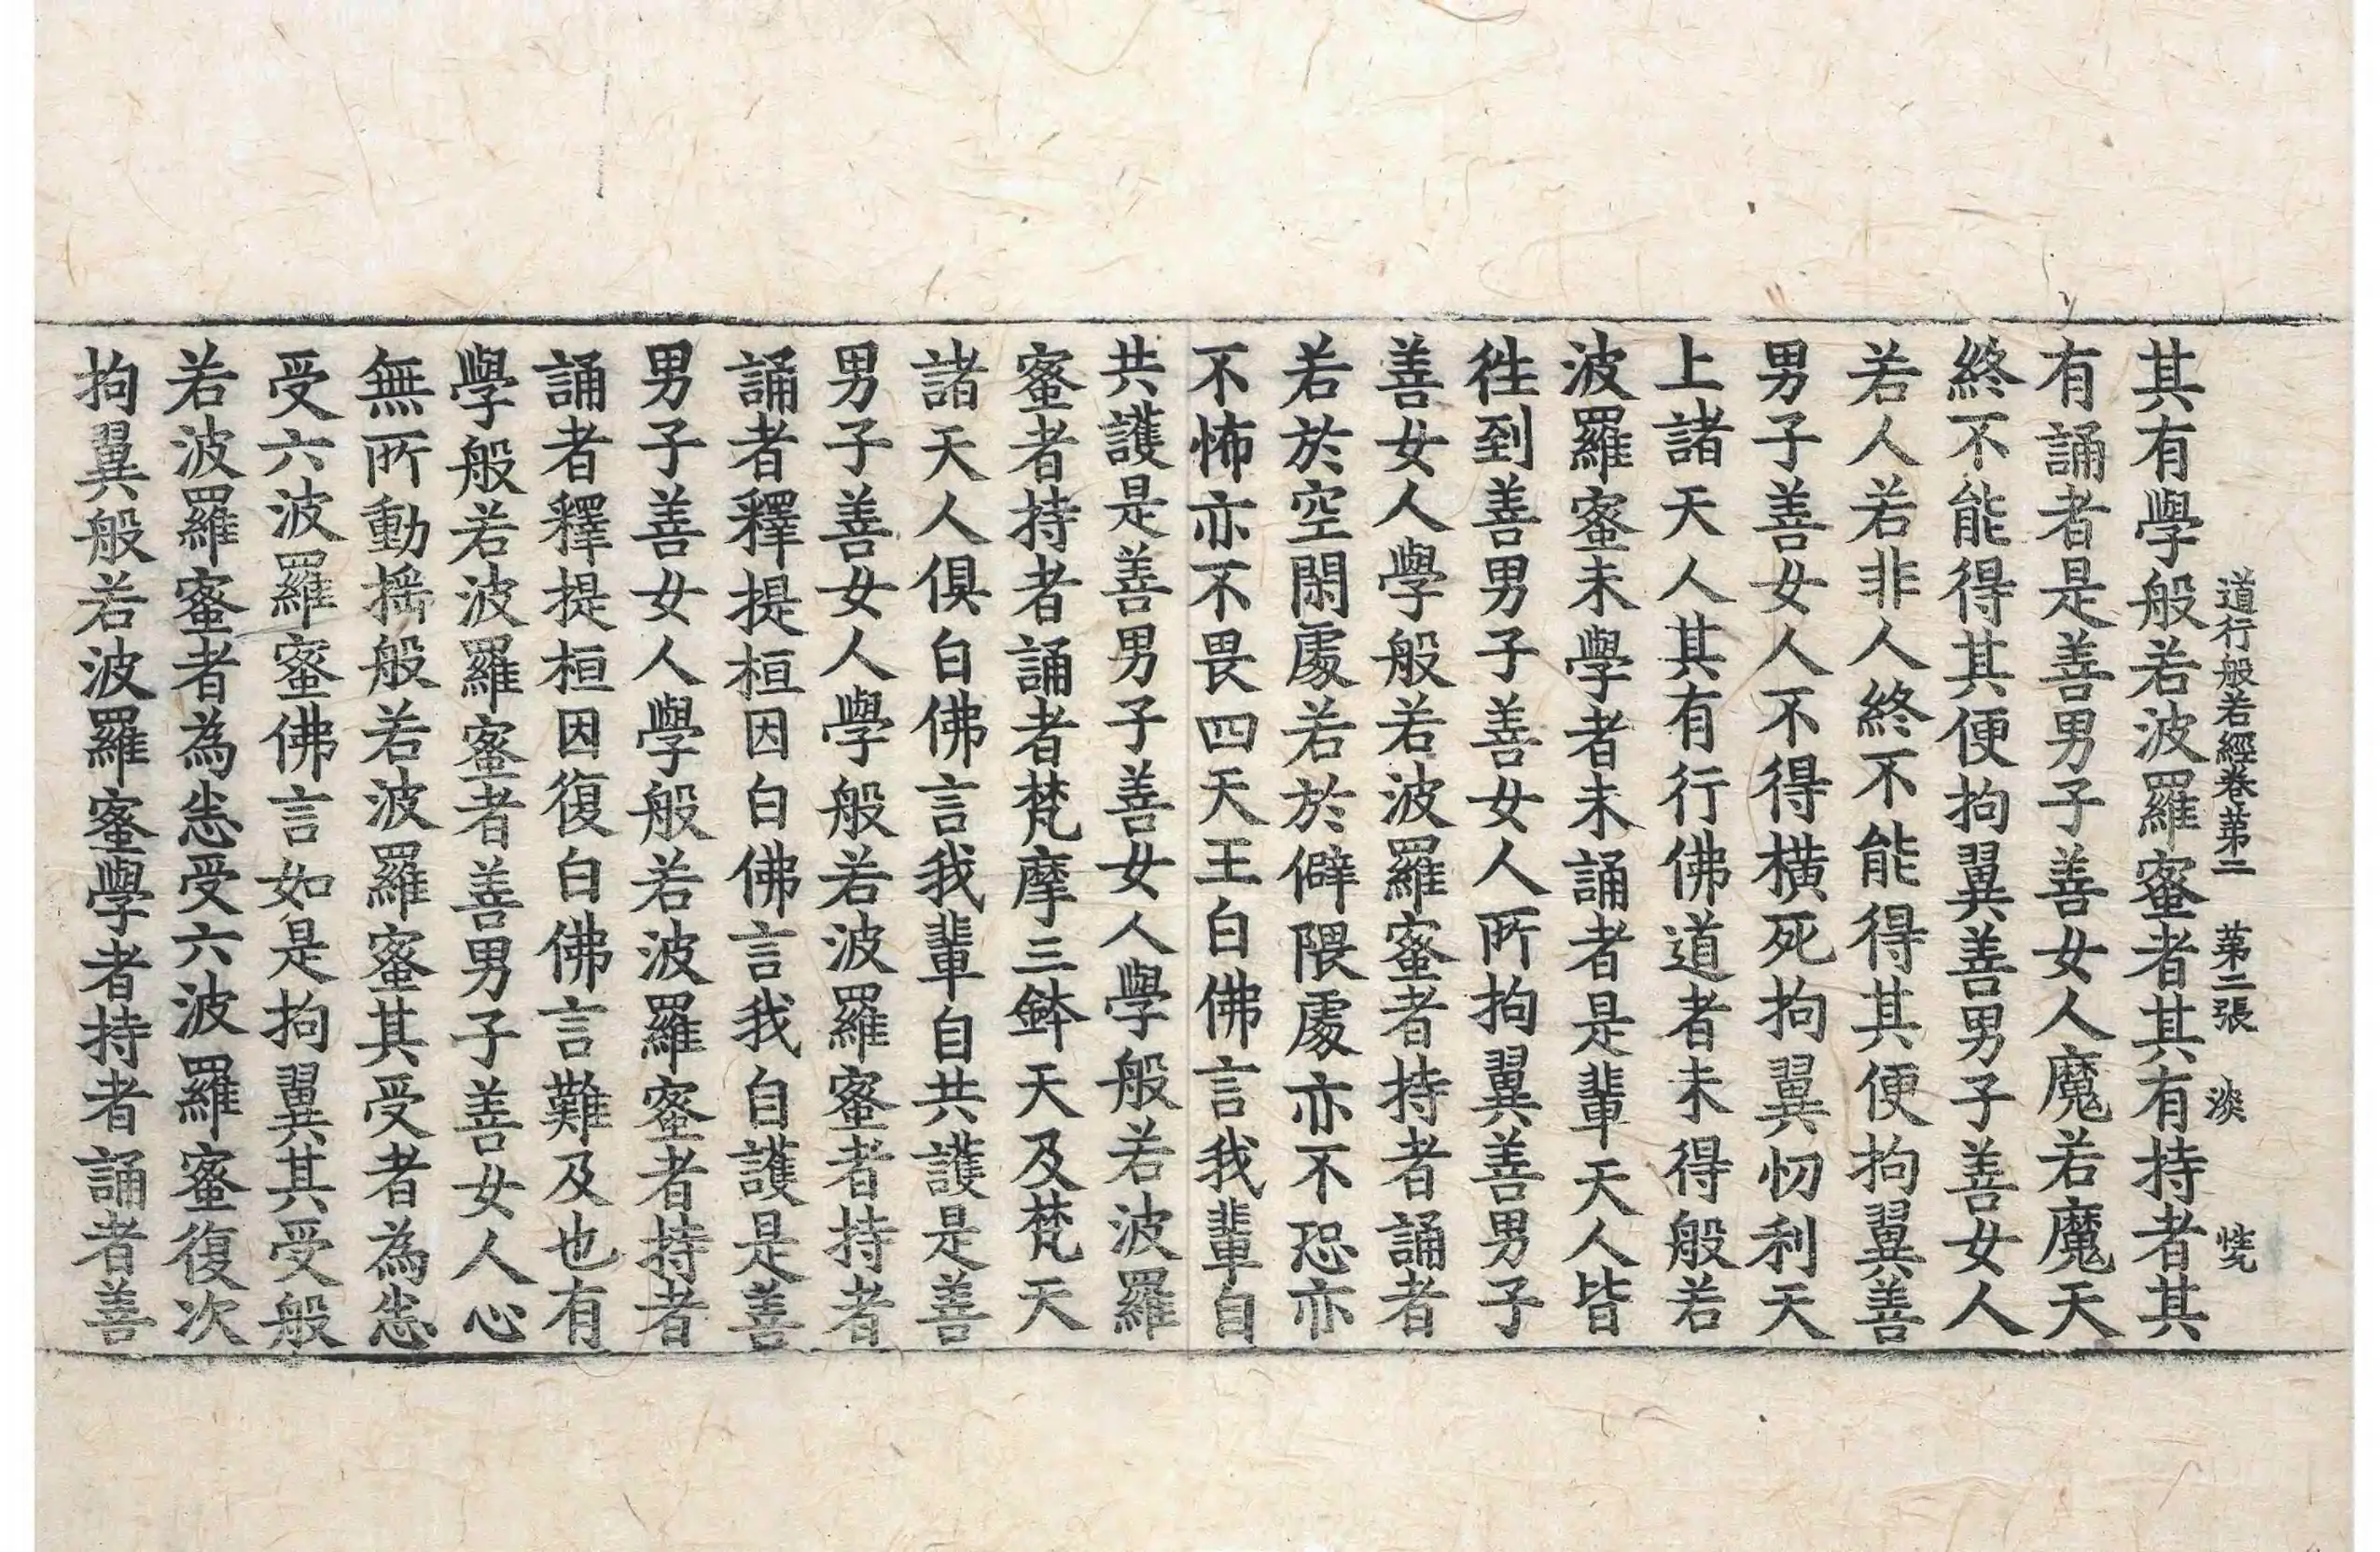 道行般若經卷苐二 苐二張 淡
其有學般若波羅蜜者其有持者其
有誦者是善男子善女人魔若魔天
終不能得其便拘翼善男子善女人
若人若非人終不能得其便拘翼善
男子善女人不得橫死拘翼忉利天
上諸天人其有行佛道者未得般若
波羅蜜未學者未誦者是輩天人皆
徃到善男子善女人所拘翼善男子
善女人學般若波羅蜜者持者誦者
若於空閑處若於僻隈處亦不恐亦
不怖亦不畏四天王白佛言我輩自
共護是善男子善女人學般若波羅
蜜者持者誦者梵摩三鉢天及梵天
諸天人俱白佛言我輩自共護是善
男子善女人學般若波羅蜜者持者
誦者釋提桓因白佛言我自護是善
男子善女人學般若波羅蜜者持者
誦者釋提桓因復白佛言難及也有
學般若波羅蜜者善男子善女人心
無所動搖般若波羅蜜其受者為悉
受六波羅蜜佛言如是拘翼其受般
若波羅蜜者為悉受六波羅蜜復次
拘翼般若波羅蜜學者持者誦者善